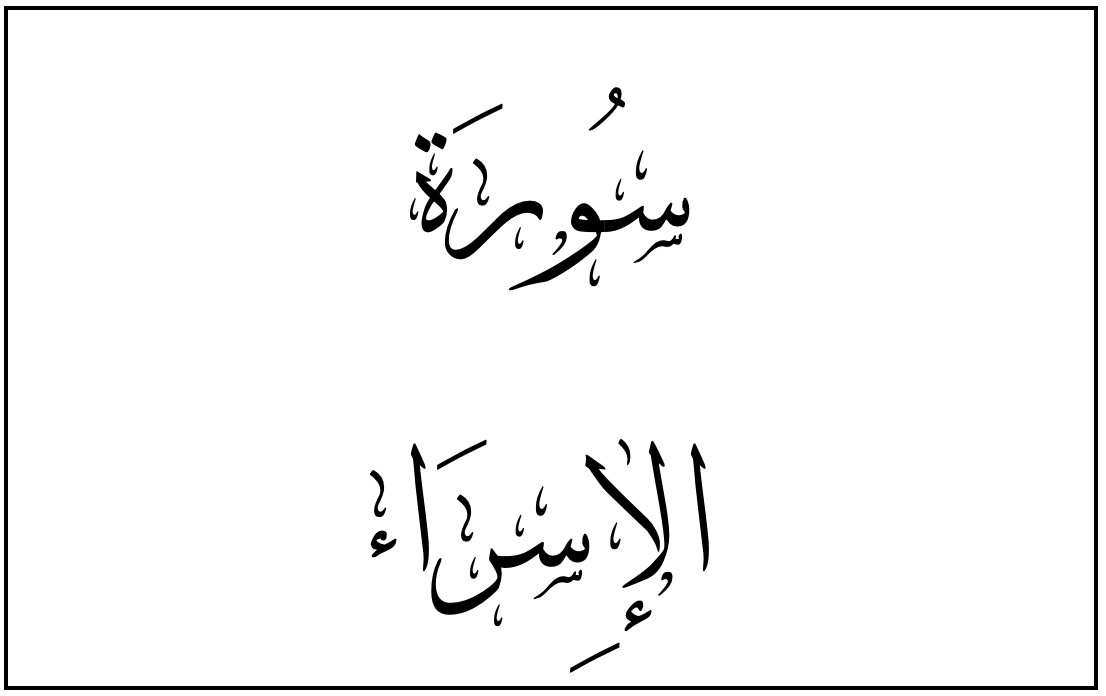 سُورَة
الإِسرَاء